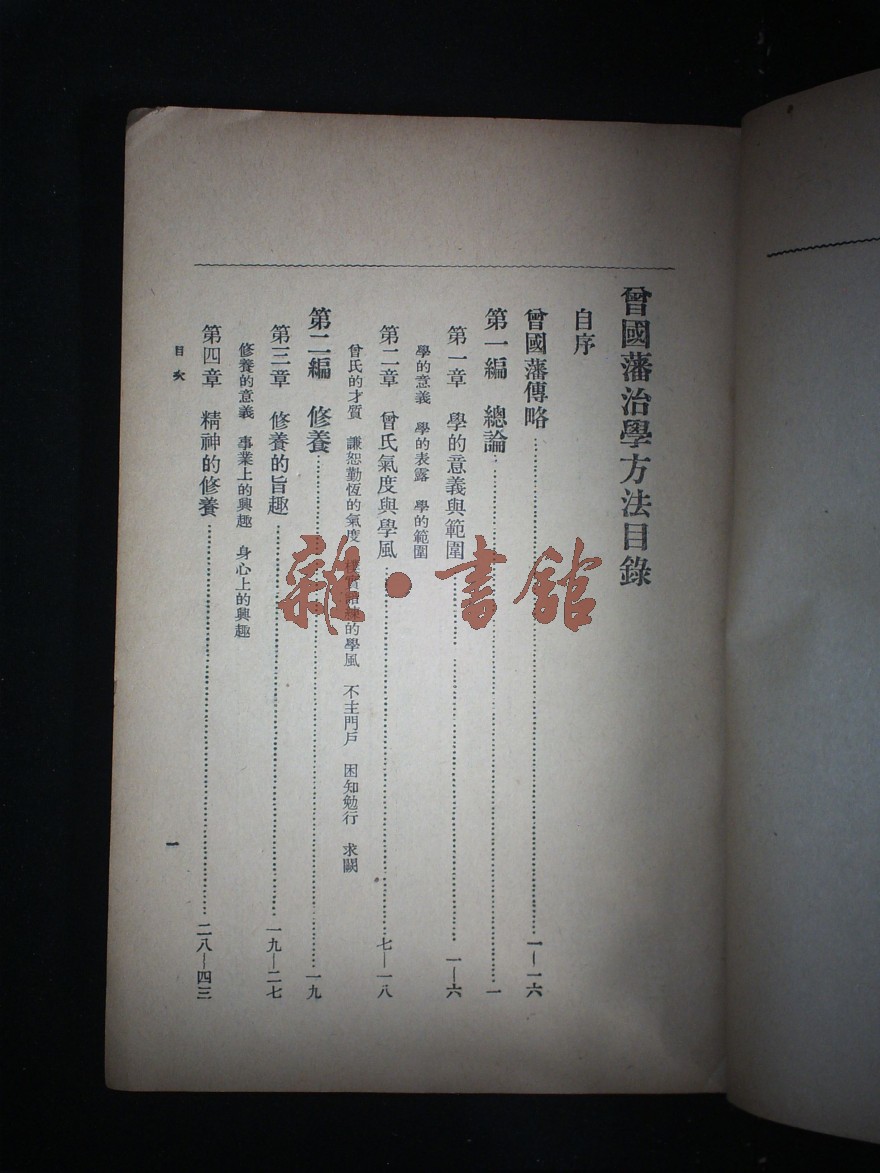 曾國藩治學方法目錄
自序
曾國藩傳略………一—一六
第一編 總論………一
第一章 學的意義與範圍………一—六
學的意義 學的表露 學的範圍
第二章 曾氏氣度與學風………七—一八
曾氏的才質 謙恕勤恆的氣度 的學風 不主門戶 困知勉行 求闕
第二編 修養………一九
第三章 修養的旨趣………一九—二七
修養的意義 事業上的興趣 身心上的興趣
第四章 精神的修養………二八—四三
目次
一
雜·書館